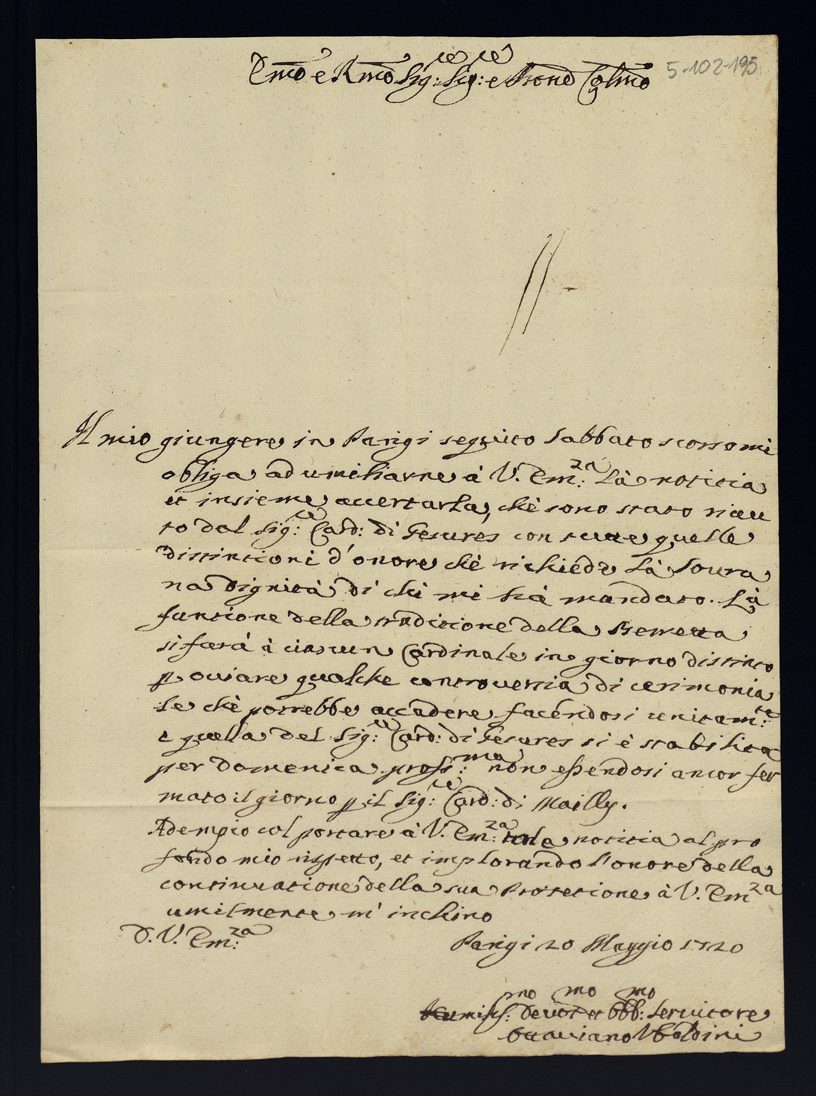 Emo e Rmo Sig:re Sig:re e Prone Colmo
5-102-195
Il mio giungere in Parigi seguito Sabbato scorso mi
obliga ad umiliarne à V. Em:za Là notitia
et insieme accertarla, chè sono stato riceu
to dal Sig:re Card: di Gesures con tutte quelle
distintioni d'onore chè richiede Là Soura
na Dignità di chi mi hà mandato. Là
funtione della traditione della Berretta
si farà à ciascun Cardinale in giorno distinto
p ouiare qualche controuersia di cerimonia
le chè potrebbe accadere facendosi unitam:te
e quella del Sig:re Card: di Gesures si è stabilita
per domenica pross:ma non essendosi ancor fer
mato il giorno p il Sig:re Card: di Mailly.
Adempio col portare à V. Em:za tale notitia al pro
fondo mio rispetto, et implorando l'onore della
continuatione della sua Protetione à V. Emza
umilmente m'inchino
D. V. Em:za
Parigi 20 Maggio 1720
Humiliss:mo Deuotmo et Obb:mo Seruitore
Ottauiano Vbaldini